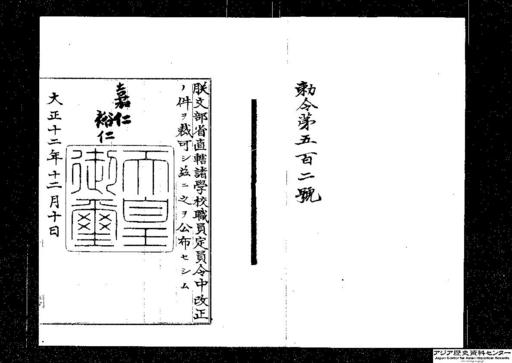 勅令第五百二號
朕文部省直轄諸學校職員定員令中改正
ノ件ヲ裁可シ茲ニ之ヲ公布セシム
嘉仁
裕仁
天皇
御璽
大正十二年十二月十日
アジア歴史資料センター
Japan Center for Asian Historical Records